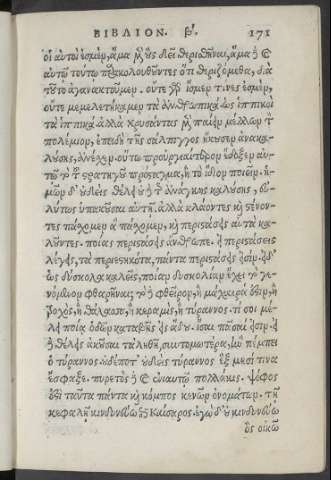 ΒΙΒΛΙΟΝ. β'. 171
οἱ αὐτοί ἐσμεν, ἅμα μὲν οὐ θέλει θερισθῆναι, ἅμα δὲ
αὐτῷ τούτῳ παρακολουθοῦντες ὅτι θεριζόμεθα, διὰ
τοῦτο ἀγανακτοῦμεν. οὔτε γὰρ ἴσμεν τίνες ἐσμέν,
οὔτε μεμελετήκαμεν τὰ ἀνθρωπικὰ ὡς ἱππικοὶ
τὰ ἱππικά. ἀλλὰ Χρυσάντας μὲν παίειν μέλλων τὸν
πολέμιον, ἐπειδὴ τῆς σάλπιγγος ἤκουσεν ἀνακα-
λούσης, ἀνέσχεν. οὕτω προυργιαίτερον ἔδοξεν αὐ-
τῷ τὸ τοῦ στρατηγοῦ πρόσταγμα, ἢ τὸ ἴδιον ποιεῖν. ἡ-
μῶν δ' οὐδεὶς θέλει οὐδὲ τῆς ἀνάγκης καλούσης, εὐ-
λύτως ὑπακοῦσαι αὐτῇ. ἀλλὰ κλάοντες καὶ στένον-
τες πάσχομεν ἃ πάσχομεν, καὶ περιστάσεις αὐτὰ κα-
λοῦντες. ποίας περιστάσεις ἄνθρωπε. εἰ περιστάσεις
λέγεις, τὰ περιεστηκότα, πάντα περιστάσεις εἰσίν. εἰ δ'
ὡς δύσκολα καλεῖς, ποίαν δυσκολίαν ἔχει τὸ γε-
νόμενον φθαρῆναι; τὸ δὲ φθεῖρον, ἢ μάχαιρά ἐστιν, ἢ
τροχός, ἢ θάλασσα, ἢ κεραμίς, ἢ τύραννος. τί σοι μέ-
λει ποίᾳ ὁδῷ καταβῇς εἰς ᾅδου. ἴσαι πᾶσαί εἰσιν. εἰ
δὲ θέλεις ἀκοῦσαι τἀληθῆ, συντομωτέρα, ἣν πέμπει
ὁ τύραννος. οὐδέποτ' οὐδεὶς τύραννος ἓξ μησί τινα
ἔσφαξε. πυρετὸς δὲ καὶ ἐνιαυτῷ πολλάκις. ψόφος
ἐστὶ ταῦτα πάντα καὶ κόμπος κενῶν ὀνομάτων. τῇ
κεφαλῇ κινδυνεύω ἐπὶ Καίσαρος. ἐγὼ δ' οὐ κινδυνεύω
ὃς οἰκῶ